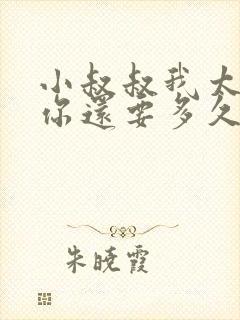 小叔叔我太
你還要多久
朱曉霞